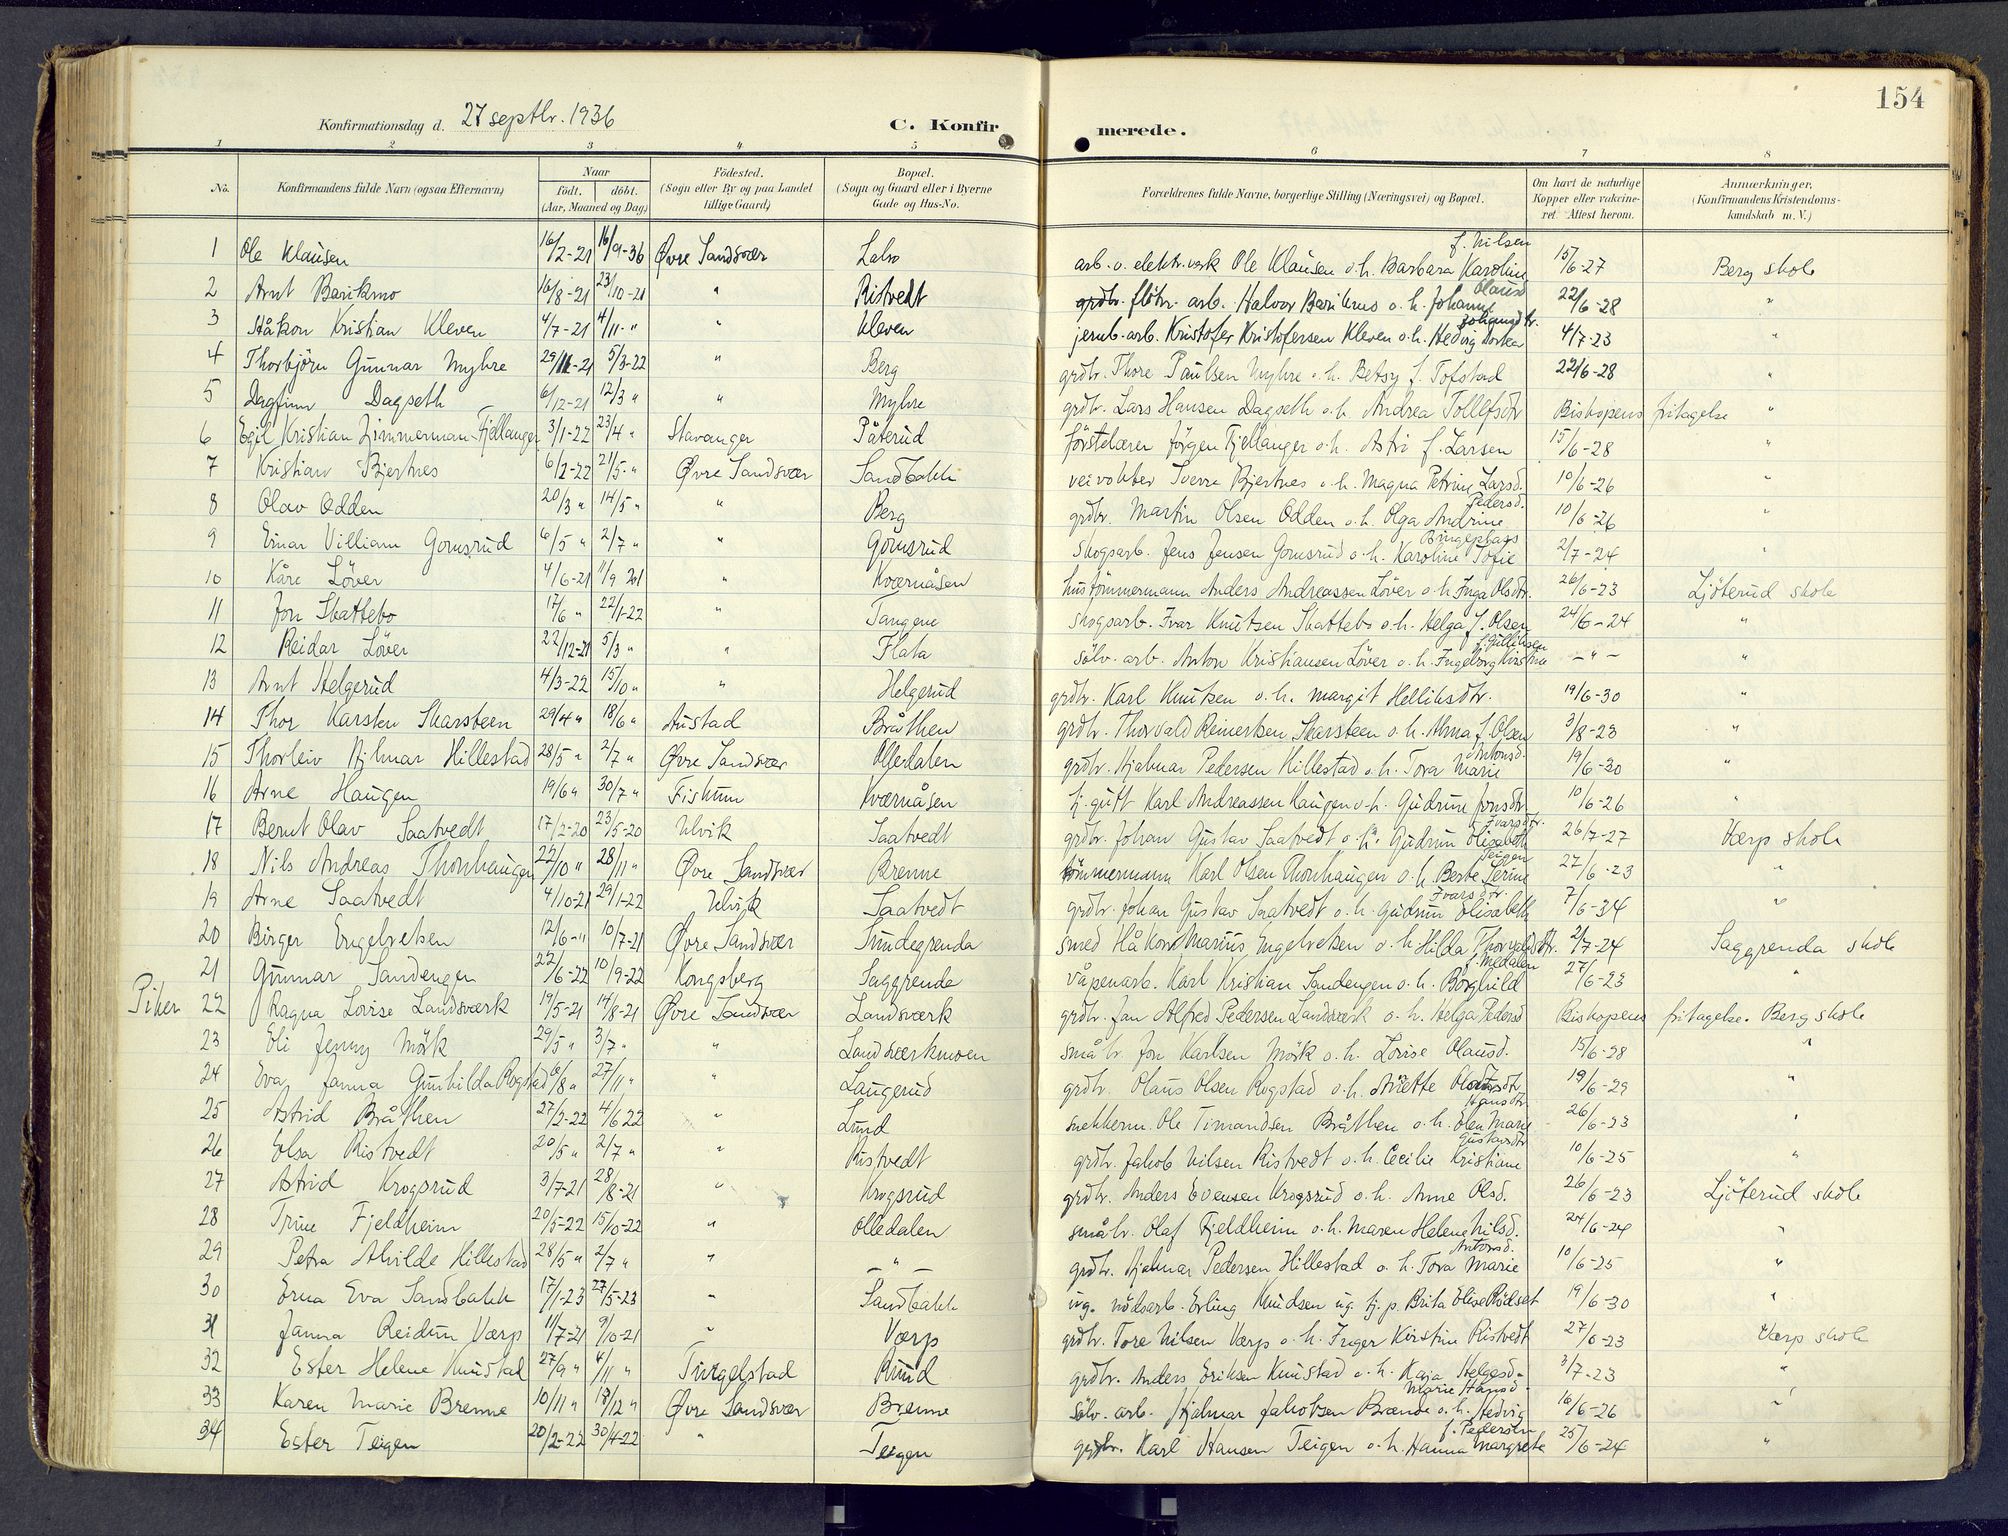 154
Konfirmationsdag d. 27 septbr. 1936 C. Konfirmerede.
1 2 3 4 5 6 7 8
No. Konfirmandens fulde Navn (ogsaa Efternavn) Naar født. døbt. (Aar, Maaned og Dag) Födested. (Sogn eller By og paa Landet tillige Gaard) Bopæl. (Sogn og Gaard eller i Byerne Gade og Hus-No. Forældrenes fulde Navne, borgerlige Stilling (Næringsvei) og Bopæl. Om havt de naturlige Kopper eller vakcineret. Attest herom. Anmærkninger. (Konfirmandens Kristendomskundskab m. V.)
1 Ole Klausen 16/2-21 16/9-36 Øvre Sandsvær Labo arb. v. elektr.verk Ole Klausen o.h. Barbara Karoline f. Nilsen 15/6-27 Berg skole
2 Arnt Barikmo 16/8-21 23/10-21 " Ristvedt grdbr. fløtn. arb. Halvor Barikmo o.h. Johanne Olausd 22/6-28 "
3 Håkon Kristian Kleven 4/7-21 4/11-" " Kleven jernb.arb. Kristofer Kristofersen Kleven o.h. Hedvig Dorkea Johansdtr. 4/7-23 "
4 Thorbjörn Gunnar Myhre 29/11-21 5/3-22 " Berg grdbr. Thore Paulsen Myhre o.h. Betsy f. Tofstad 22/6-28 "
5 Dagfinn Dagseth 6/12-21 12/3 " " Myhre grdbr. Lars Hansen Dagseth o.h. Andrea Tollefsdtr Bishopens fritagelse "
6 Egil Kristian Zimmerman Fjellanger 3/1-22 23/4 " Stavanger Påterud förstelærer Jörgen Fjellanger o.h. Astri f. Larsen 15/6-28 "
7 Kristian Bjertnes 6/2-22 21/5-" Øvre Sandsvær Sandbakk veivokter Sverre Bjertnes o.h. Magna Petrine Larsd. 10/6-26 "
8 Olav Odden 20/3 " 14/5-" " Berg grdbr. Martin Olsen Odden o.h. Olga Andrine Pedersd. 10/6-26 "
9 Einar Villiam Gomsrud 6/5 " 2/7 " " Gomsrud skogsarb. Jens Jensen Gomsrud o.h. Karoline Tofie 2/7-24 "
10 Kåre Löver 4/6-21 11/9 21 " Kværnåsen hustömmermann Anders Andreassen Löver o.h Inga Olsdtr. 26/6-23 Ljöterud skole
11 Jon Skattebo 17/6 " 22/1-22 " Tangene skogsarb. Ivar Knutsen Skattebo o.h. Helga f. Olsen 24/6-24 "
12 Reidar Löver 22/12-21 5/3 " " Flata sölv. arb. Anton Kristiansen Löver o.h. Ingeborg Kirstine f. Gulliksen -"- "
13 Arnt Helgerud 4/3-22 15/10 " " Helgerud grdbr. Karl Knutsen o.h. Margit Helliksdtr. 19/6-30 "
14 Thor Karsten Skarsteen 29/4 " 18/6 " Austad Bråthen grdbr. Thorvald Reinertsen Skarsteen o.h. Alma f. Olsen 3/8-23 "
15 Thorleiv Hjlmar Hillestad 28/5 " 2/7 " Øvre Sandsvær Olledalen grdbr. Hjalmar Pedersen Hillestad o.h. Tora Marie Antonsd. 19/6-30 "
16 Arne Haugen 19/6 " 30/7 " Fiskum Kværnåsen fj. gift Karl Andreassen Haugen o.h. Gudrun Jonsdtr. 10/6-26 "
17 Bernt Olav Saatvedt 17/2-20 23/5-20 Ulvik Saatvedt grdbr. Johan Gustav Saatvedt o.h. Gudrun Elisabeth Ivarsdtr. 26/7-27 Værp skole
18 Nils Andreas Thonhaugen 22/10 " 28/11 " Øvre Sandsvær Brenne tömmermann Karl Olsen Thonhaugen o.h. Berte Serine Teigen 27/6-23 "
19 Arne Saatvedt 4/10-21 29/1-22 Ulvik Saatvedt grdbr. Johan Gustav Saatvedt o.h. Gudrun Elisabeth Ivarsdtr. 7/6-34 "
20 Birger Engebretsen 12/6-" 10/7-21 Øvre Sandsvær Sundegrenda smed Håkon Marius Engebretsen o.h Hilda Thorvaldsdtr. 2/7-24 Saggrenda skole
21 Gunnar Sandengen 22/6-22 10/9-22 Kongsberg Saggrenda våpenarb. Karl Kristian Sandengen o.h. Borghild f. Medalen 27/6-23 "
Piker 22 Ragna Lovise Landsværk 19/5-21 14/8-21 Øvre Sandsvær Landsværk grdbr. Jan Alfred Pedersen Landsværk o.h. Helga Pedersd Bishopens fritagelse. Berg skole
23 Eli Jenny Mörk 29/5 " 3/7 " " Landsværkmoen småbr. Jon Karlsen Mörk o.h. Lovise Olausd. 15/6-28 "
24 Eva Janna Gunhilda Rogstad 6/8 " 27/11 " " Laugerud grdbr. Olaus Olsen Rogstad o.h. Anette Olausdtr 19/6-29 "
25 Astrid Bråthen 27/2-22 4/6 22 " Lund snekkerm. Ole Timandsen Bråthen o.h. Elen Marie Hansdtr 26/6-23 "
26 Elsa Ristvedt 20/5 " 2/7 " " Ristvedt grdbr. Jakob Nilsen Ristvedt o.h. Cecilie Kristiane Gustavsdtr 10/6-25 "
27 Astrid Krogsrud 3/7-21 28/8-21 " Krogsrud grdbr. Anders Evensen Krogsrud o.h. Anne Olsd. 26/6-23 Ljöterud skole
28 Trine Fjeldheim 20/5-22 15/10-22 " Olledalen småbr. Olaf Fjeldheim o.h. Maren Helene Nilsd. 24/6-24 "
29 Petra Alvilde Hillestad 28/5 " 2/7 " " -"- grdbr. Hjalmar Pedersen Hillestad o.h. Tora Marie Antonsd. 10/6-25 "
30 Erna Eva Sandbakk 17/1-23 27/5-23 " Sandbakk ug. nödsarb. Erling Knudsen ug. tj.p. Brita Elise Rödset 19/6-30 "
31 Janna Reidun Værp 11/7-21 9/10-21 " Værp grdbr. Tore Nilsen Værp o.h. Inger Kirstin Ristvedt 27/6-23 Værp skole
32 Ester Helene Knustad 27/9 " 4/11 " Tingelstad Ruud grdbr. Anders Eriksen Knustad o.h. Kaja Helgesd. 3/7-23 "
33 Karen Marie Brenne 10/11 " 18/12 " Øvre Sandsvær Brenne sölv. arb. Hjalmar Jakobsen Brænde o.h. Hedvig Marie Hansd. 16/6-26 "
34 Ester Teigen 20/2-22 30/4-22 " Teigen grdbr. Karl Hansen Teigen o.h. Hanna Margrete f. Pedersen 25/6-24 "